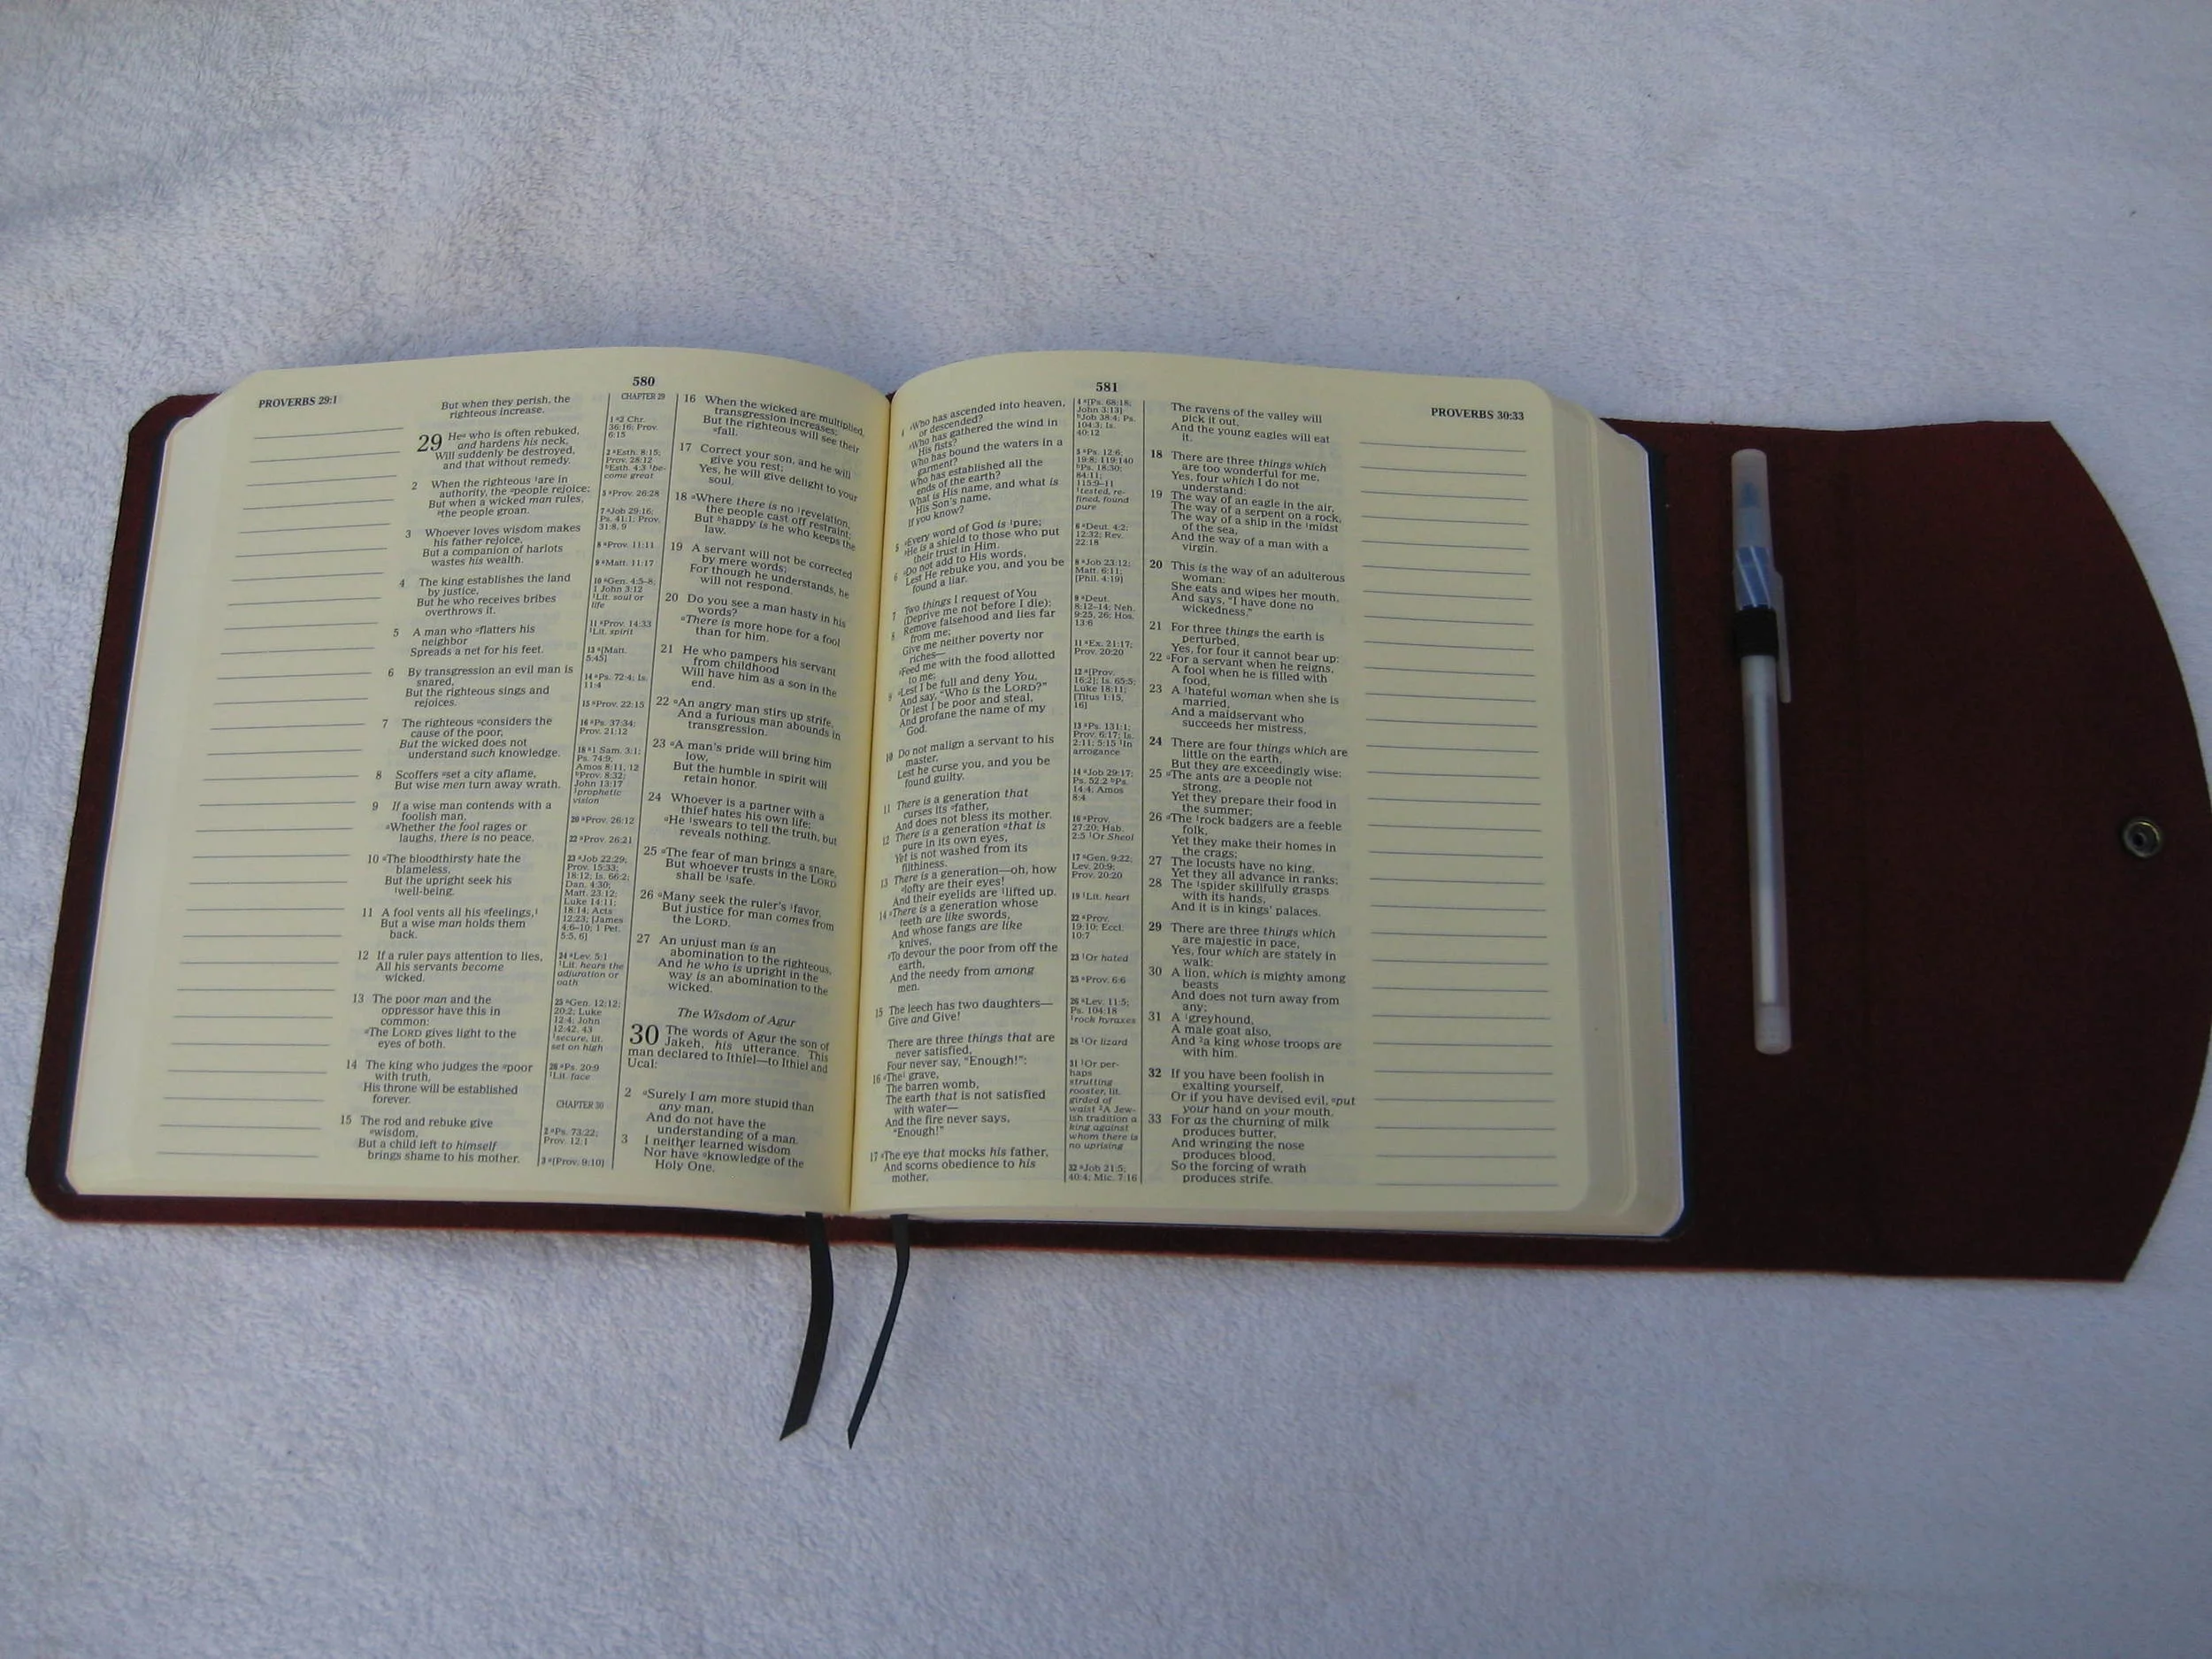 580
PROVERBS 29:1
But when they perish, the
righteous increase.
29 He a who is often rebuked,
and hardens his neck,
Will suddenly be destroyed,
and that without remedy.
2 When the righteous 1are in
authority, the apeople rejoice;
But when a wicked man rules,
bthe people groan.
3 Whoever loves wisdom makes
his father rejoice,
But a companion of harlots
wastes his wealth.
4 The king establishes the land
by justice,
But he who receives bribes
overthrows it.
5 A man who aflatters his
neighbor
Spreads a net for his feet.
6 By transgression an evil man is
snared,
But the righteous sings and
rejoices.
7 The righteous aconsiders the
cause of the poor,
But the wicked does not
understand such knowledge.
8 Scoffers aset a city aflame,
But wise men turn away wrath.
9 If a wise man contends with a
foolish man,
aWhether the fool rages or
laughs, there is no peace.
10 aThe bloodthirsty hate the
blameless,
But the upright seek his
1well-being.
11 A fool vents all his afeelings,1
But a wise man holds them
back.
12 If a ruler pays attention to lies,
All his servants become
wicked.
13 The poor man and the
oppressor have this in
common:
aThe LORD gives light to the
eyes of both.
14 The king who judges the apoor
with truth,
His throne will be established
forever.
15 The rod and rebuke give
awisdom,
But a child left to himself
brings shame to his mother.
CHAPTER 29
1 a2 Chr.
36:16; Prov.
6:15
2 aEsth. 8:15;
Prov. 28:12
bEsth. 4:3 1be-
come great
5 aProv. 26:28
7 aJob 29:16;
Ps. 41:1; Prov.
31:8, 9
8 aProv. 11:11
9 aMatt. 11:17
10 aGen. 4:5–8;
1 John 3:12
1Lit. soul or
life
11 aProv. 14:33
1Lit. spirit
13 a[Matt.
5:45]
14 aPs. 72:4; Is.
11:4
15 aProv. 22:15
16 aPs. 37:34;
Prov. 21:12
18 a1 Sam. 3:1;
Ps. 74:9;
Amos 8:11, 12
bProv. 8:32;
John 13:17
1prophetic
vision
20 aProv. 26:12
22 aProv. 26:21
23 aJob 22:29;
Prov. 15:33;
18:12; Is. 66:2;
Dan. 4:30;
Matt. 23:12;
Luke 14:11;
18:14; Acts
12:23; [James
4:6–10; 1 Pet.
5:5, 6]
24 aLev. 5:1
1Lit. hears the
adjuration or
oath
25 aGen. 12:12;
20:2; Luke
12:4; John
12:42, 43
1secure, lit.
set on high
26 aPs. 20:9
1Lit. face
CHAPTER 30
2 aPs. 73:22;
Prov. 12:1
3 a[Prov. 9:10]
16 When the wicked are multiplied,
transgression increases;
But the righteous will see their
afall.
17 Correct your son, and he will
give you rest;
Yes, he will give delight to your
soul.
18 aWhere there is no 1revelation,
the people cast off restraint;
But bhappy is he who keeps the
law.
19 A servant will not be corrected
by mere words;
For though he understands, he
will not respond.
20 Do you see a man hasty in his
words?
aThere is more hope for a fool
than for him.
21 He who pampers his servant
from childhood
Will have him as a son in the
end.
22 aAn angry man stirs up strife,
And a furious man abounds in
transgression.
23 aA man's pride will bring him
low,
But the humble in spirit will
retain honor.
24 Whoever is a partner with a
thief hates his own life;
aHe 1swears to tell the truth, but
reveals nothing.
25 aThe fear of man brings a snare,
But whoever trusts in the LORD
shall be 1safe.
26 aMany seek the ruler's 1favor,
But justice for man comes from
the LORD.
27 An unjust man is an
abomination to the righteous,
And he who is upright in the
way is an abomination to the
wicked.
The Wisdom of Agur
30 The words of Agur the son of
Jakeh, his utterance. This
man declared to Ithiel—to Ithiel and
Ucal:
2 aSurely I am more stupid than
any man,
And do not have the
understanding of a man.
3 I neither learned wisdom
Nor have aknowledge of the
Holy One.
581
PROVERBS 30:33
4 aWho has ascended into heaven,
or descended?
bWho has gathered the wind in
His fists?
Who has bound the waters in a
garment?
Who has established all the
ends of the earth?
What is His name, and what is
His Son's name,
If you know?
5 aEvery word of God is 1pure;
bHe is a shield to those who put
their trust in Him.
6 aDo not add to His words,
Lest He rebuke you, and you be
found a liar.
7 Two things I request of You
(Deprive me not before I die):
8 Remove falsehood and lies far
from me;
Give me neither poverty nor
riches—
aFeed me with the food allotted
to me;
9 aLest I be full and deny You,
And say, "Who is the LORD?"
Or lest I be poor and steal,
And profane the name of my
God.
10 Do not malign a servant to his
master,
Lest he curse you, and you be
found guilty.
11 There is a generation that
curses its afather,
And does not bless its mother.
12 There is a generation athat is
pure in its own eyes,
Yet is not washed from its
filthiness.
13 There is a generation—oh, how
alofty are their eyes!
And their eyelids are 1lifted up.
14 aThere is a generation whose
teeth are like swords,
And whose fangs are like
knives,
bTo devour the poor from off the
earth,
And the needy from among
men.
15 The leech has two daughters—
Give and Give!
There are three things that are
never satisfied,
Four never say, "Enough!":
16 aThe1 grave,
The barren womb,
The earth that is not satisfied
with water—
And the fire never says,
"Enough!"
17 aThe eye that mocks his father,
And scorns obedience to his
mother,
4 a[Ps. 68:18;
John 3:13]
bJob 38:4; Ps.
104:3; Is.
40:12
5 aPs. 12:6;
19:8; 119:140
bPs. 18:30;
84:11;
115:9–11
1tested, re-
fined, found
pure
6 aDeut. 4:2;
12:32; Rev.
22:18
8 aJob 23:12;
Matt. 6:11;
[Phil. 4:19]
9 aDeut.
8:12–14; Neh.
9:25, 26; Hos.
13:6
11 aEx. 21:17;
Prov. 20:20
12 a[Prov.
16:2]; Is. 65:5;
Luke 18:11;
[Titus 1:15,
16]
13 aPs. 131:1;
Prov. 6:17; Is.
2:11; 5:15 1In
arrogance
14 aJob 29:17;
Ps. 52:2 bPs.
14:4; Amos
8:4
16 aProv.
27:20; Hab.
2:5 1Or Sheol
17 aGen. 9:22;
Lev. 20:9;
Prov. 20:20
19 1Lit. heart
22 aProv.
19:10; Eccl.
10:7
23 1Or hated
25 aProv. 6:6
26 aLev. 11:5;
Ps. 104:18
1rock hyraxes
28 1Or lizard
31 1Or per-
haps
strutting
rooster, lit.
girded of
waist 2A Jew-
ish tradition a
king against
whom there is
no uprising
32 aJob 21:5;
40:4; Mic. 7:16
The ravens of the valley will
pick it out,
And the young eagles will eat
it.
18 There are three things which
are too wonderful for me,
Yes, four which I do not
understand:
19 The way of an eagle in the air,
The way of a serpent on a rock,
The way of a ship in the 1midst
of the sea,
And the way of a man with a
virgin.
20 This is the way of an adulterous
woman:
She eats and wipes her mouth,
And says, "I have done no
wickedness."
21 For three things the earth is
perturbed,
Yes, for four it cannot bear up:
22 aFor a servant when he reigns,
A fool when he is filled with
food,
23 A 1hateful woman when she is
married,
And a maidservant who
succeeds her mistress.
24 There are four things which are
little on the earth,
But they are exceedingly wise:
25 aThe ants are a people not
strong,
Yet they prepare their food in
the summer;
26 aThe 1rock badgers are a feeble
folk,
Yet they make their homes in
the crags;
27 The locusts have no king,
Yet they all advance in ranks;
28 The 1spider skillfully grasps
with its hands,
And it is in kings' palaces.
29 There are three things which
are majestic in pace,
Yes, four which are stately in
walk:
30 A lion, which is mighty among
beasts
And does not turn away from
any;
31 A 1greyhound,
A male goat also,
And 2a king whose troops are
with him.
32 If you have been foolish in
exalting yourself,
Or if you have devised evil, aput
your hand on your mouth.
33 For as the churning of milk
produces butter,
And wringing the nose
produces blood,
So the forcing of wrath
produces strife.